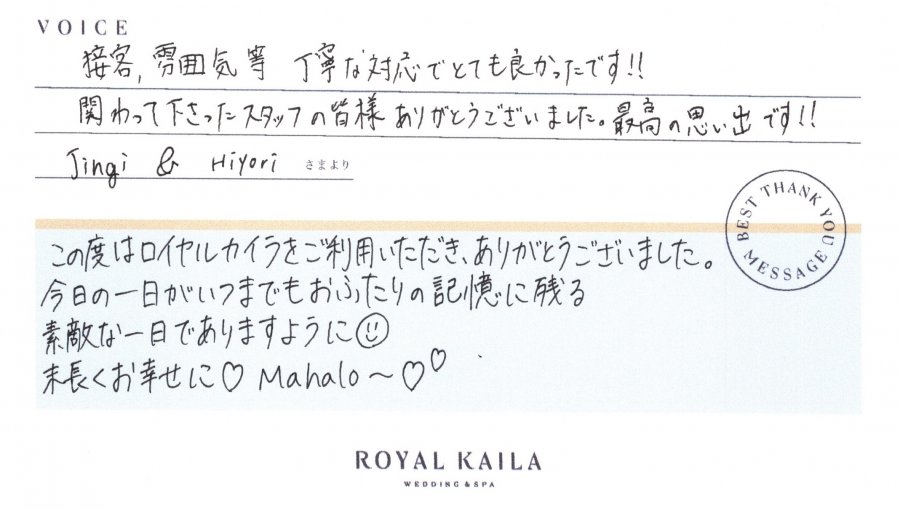 VOICE
接客,雰囲気等 丁寧な対応でとても良かったです!!
関わって下さったスタッフの皆様ありがとうございました。最高の思い出です!!
Jingi & Hiyori さまより
BEST THANK YOU MESSAGE
この度はロイヤルカイラをご利用いただき、ありがとうございました。
今日の一日がいつまでもおふたりの記憶に残る
素敵な一日でありますように☺
末長くお幸せに♡ Mahalo〜♡♡
ROYAL KAILA
WEDDING & SPA